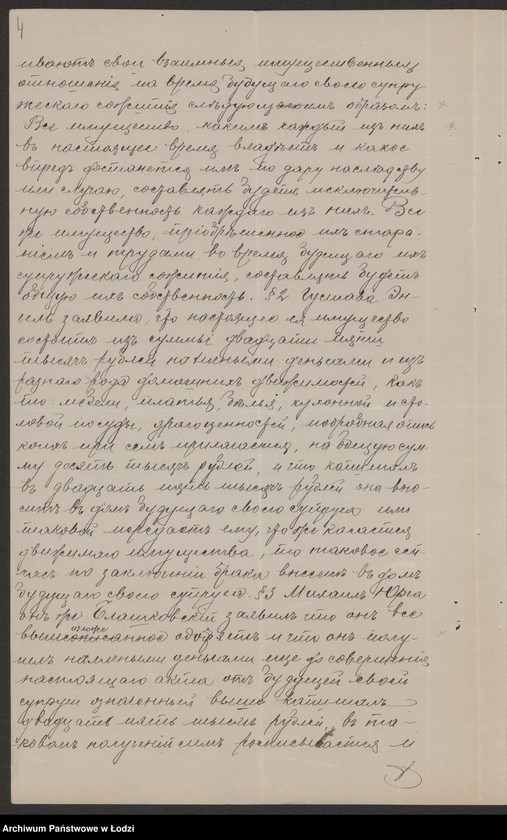 4
ливаютъ свои взаимныя имущественныя
отношенія на время будущаго своего супру
жескаго сожитія слѣдующимъ образомъ:
Все имущество, какимъ каждый изъ нихъ
въ настоящее время владѣетъ и какое
впредь достанется имъ по дару наслѣдству
или случаю, составлять будетъ исключитель-
ную собственность каждаго изъ нихъ. Все
же имущество, пріобрѣтенное ихъ стара-
ніемъ и трудами во время будущаго ихъ
супружескаго сожитія, составлять будетъ
общую ихъ собственность. §2 Густава Эн-
гель заявила, что настоящее ея имущество
состоитъ изъ суммы двадцати пяти
тысячъ рублей наличными деньгами и изъ
разнаго рода домашнихъ движимостей, какъ
то: мебели, платья, бѣлья, кухонной и сто-
ловой посуды, драгоценностей, подробная опись
коихъ при семъ прилагается, на общую сум-
му десять тысячъ рублей, и что капиталъ
въ двадцать пять тысячъ рублей она вно-
ситъ въ домъ будущаго своего супруга или
таковой передастъ ему, что же касается
движимаго имущества, то таковое сей-
часъ по заключеніи брака внесетъ въ домъ
будущаго своего супруга. §3 Михаилъ Юрга
онъ же Блашковскій заявилъ что онъ все
вышеизложенное одобряетъ и что онъ полу-
чилъ наличными деньгами еще до совершенія
настоящаго акта отъ будущей своей
супруги означенный выше капиталъ
двадцать пять тысячъ рублей, въ та-
ковомъ полученіи симъ росписывается и
Archiwum Państwowe w Łodzi
Archiwum Państwowe w Łodzi